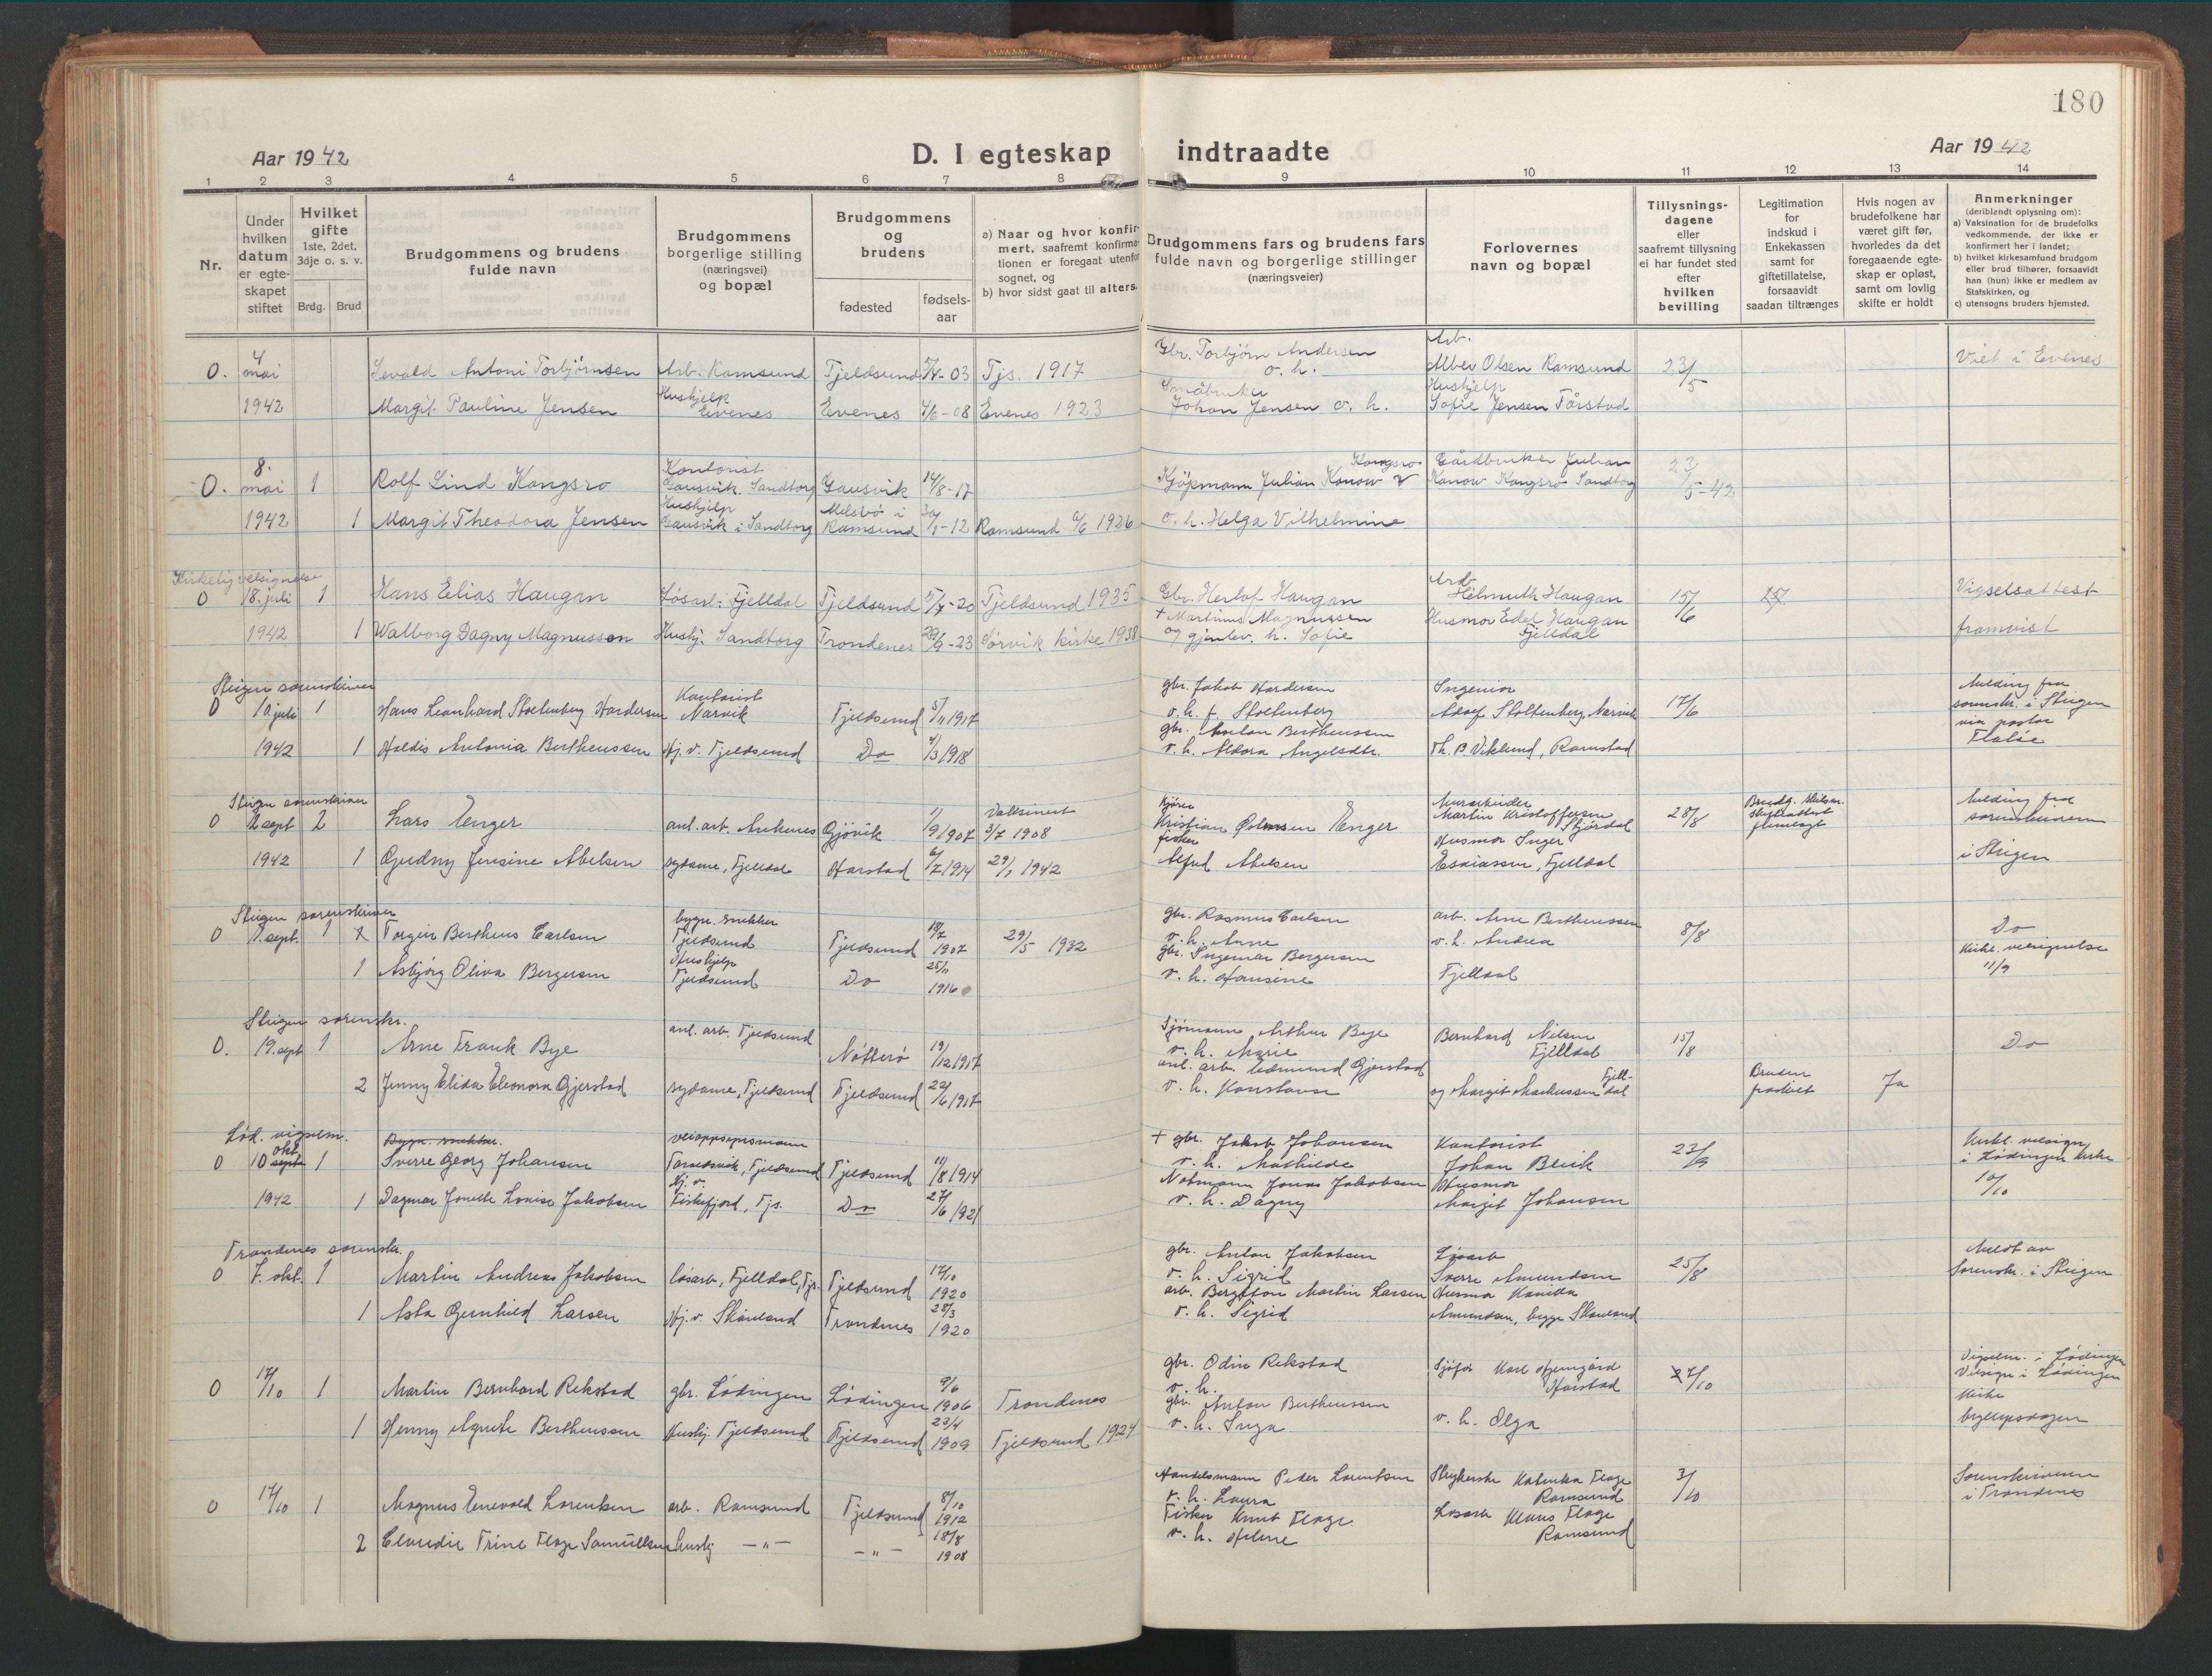 180
Aar 1942
D. I egteskap indtraadte
Aar 1942
1 2 3 4 5 6 7 8 9 10 11 12 13 14
Nr.
Under hvilken datum er egteskapet stiftet
Hvilket gifte
1ste, 2det, 3dje o. s. v.
Brdg. Brud
Brudgommens og brudens fulde navn
Brudgommens borgerlige stilling (næringsvei) og bopæl
Brudgommens og brudens
fødested
fødselsaar
a) Naar og hvor konfirmert, saafremt konfirmationen er foregaat utenfor sognet, og
b) hvor sidst gaat til alters.
Brudgommens fars og brudens fars fulde navn og borgerlige stillinger (næringsveier)
Forlovernes navn og bopæl
Tillysningsdagene eller saafremt tillysning ei har fundet sted efter hvilken bevilling
Legitimation for indskud i Enkekassen samt for giftetillatelse, forsaavidt saadan tiltrænges
Hvis nogen av brudefolkene har været gift før, hvorledes da det foregaaende egteskap er opløst, samt om lovlig skifte er holdt
Anmerkninger
(deriblandt oplysning om):
a) Vaksination for de brudefolks vedkommende, der ikke er konfirmert her i landet;
b) hvilket kirkesamfund brudgom eller brud tilhører, forsaavidt han (hun) ikke er medlem av Statskirken, og
c) utensogns bruders hjemsted.
O. 4 mai 1942
Sevald Antoni Torbjørnsen Arb. Ramsund Fjeldsund Fjs. 1917
Gbr. Torbjørn Andersen o. h.
Arb.
Olsen Ramsund 23/5 Viet i Evenes
Margit Pauline Jensen Hushjelp Evenes Evenes 4/6-08 Evenes 1923
Småbruker
Johan Jensen o. h.
Hushjelp
Sofie Jensen Tårstad
O. 8. mai 1942 1
Rolf Lind Kongsro Kontorist Gausvik. Sandtorg Gausvik 14/8-17
Kjøpmann Julian Kanow Kongsro
o. h. Helga Vilhelmine
Gårdbruker Julian
Kanow Kongsro Sandtorg 23/5-42
1 Margit Theodora Jensen Hushjelp Gausvik i Sandtorg Melsbø i Ramsund 30/1-12 Ramsund 6/6 1926
Kirkelig velsignelse
O 18. juli 1942 1
Hans Elias Haugan Løsarb. Fjelldal Fjeldsund Fjeldsund 1935
Gbr. Herlof Haugan
Arb
Helmuth Haugan 15/6 Vigselsattest
1 Walborg Dagny Magnusson Hushj. Sandtorg Trondenes 29/9-23 Sørvik kirke 1938
+ Martinus Magnussen
og gjenlev. h. Sofie
Husmor Edel Haugan
Fjelldal
framvist
Steigen sorenskriver
O 10 juli 1942 1
Hans Leonhard Stoltenberg Hardersen Kontorist Narvik Fjeldsund 5/11 1917
gbr. Jakob Hardersen
o. h. f. Stoltenberg
Ingeniør
Adolf Stoltenberg, Narvik 17/6
Melding fra
sorenskr. i Steigen
via pastor
1 Haldis Antonia Bertheussen Hj. v. Fjeldsund Do 4/3 1918
gbr. Anton Bertheussen
o. h. Aldora Angelsdtr.
Th. B. Viklund, Ramstad
Steigen sorenskriver
O 2 sept 1942 2
Lars Enger anl. arb. Ankenes Gjøvik 1/9 1907
Vaksinert
3/7 1908
Kjører
Kristian Enger
Murarbeider
Martin Kristoffersen
Stjørdal 28/8
Melding fra
sorenskriveren
i Steigen
1 Gudny Jensine Abelsen sydame, Fjelldal Harstad 6/7 1914 29/1 1942
fisker
Alfred Abelsen
Husmor Inger
Esaiassen, Fjelldal
Steigen sorenskriver
O 11. sept. 1
Torgeir Bertheus Carlsen bygn. snekker Fjeldsund Fjeldsund 18/7 1907 29/5 1932
gbr. Rasmus Carlsen
o. h. Anne
arb. Arne Bertheussen
o. h. Andrea
Fjelldal 8/8
Do
Kirkl. velsignelse
11/9
1 Asbjørg Oliva Bergersen Hushjelp Fjeldsund Do 25/11 1916
gbr. Ingemar Bergersen
o. h. Hansine
Steigen sorenskr.
O. 19. sept 1
Arne Frank Bye anl. arb. Fjeldsund Nøtterø 19/12 1917
Sjømann Arthur Bye
o. h. Marie
Bernhard Nilsen
Fjelldal 15/8 Do
2 Jenny Elida Eleonora Gjerstad sydame, Fjeldsund Fjeldsund 22/6 1917
anl. arb. Edmund Gjerstad
o. h. Konstanse
og Margit Markussen Fjelldal
Bruden
fraskilt Ja
Lød. vigselm.
O 10 okt. 1942 1
Bygn. snekker.
Sverre Georg Johansen veioppsynsmann Fjeldsund Fjeldsund 11/8 1914
+ gbr. Jakob Johansen
o. h. Mathilde
Kontorist
Johan Bleik 23/9
Kirkl. velsign.
i Lødingen kirke
10/10
1 Dagmar Jonette Lovise Jakobsen Hj. v. Fiskefjord, Fjs. Do 27/6 1921
Notmann Jonas Jakobsen
o. h. Dagny
Husmor
Margit Johansen
Trondenes sorenskr.
O 7. okt. 1
Martin Andreas Jakobsen løsarb., Fjelldal, Fjs. Fjeldsund 17/10 1920
gbr. Anton Jakobsen
o. h. Sigrid
Løsarb
Sverre Amundsen 25/8
Meldt av
Sorenskr. i Steigen
1 Asta Gunhild Larsen Hj. v. Skånland Trondenes 28/3 1920
arb. Bergthon Martin Larsen
o. h. Sigrid
Husmor
Amundsen, begge Skånland
O 17/10 1
Martin Bernhard Rekstad gbr. Lødingen Lødingen 9/6 1906 Trondenes
gbr. Odin Rekstad
o. h.
Sjåfør Karl Hjemgård
Harstad 7/10
Vigselm. i Lødingen
Velsign i Lødingen
kirke
bryllupsdagen
1 Henny Agnete Bertheussen Hushj. Fjeldsund Fjeldsund 23/4 1909 Fjeldsund 1924
gbr. Anton Bertheussen
o. h. Inga
o. h. Olga
O 17/10 1
Magnus Enevald Lorentsen arb. Ramsund Fjeldsund 8/10 1912
Handelsmann Peder Lorentsen
o. h. Laura
Strykerske Katinka Flage
Ramsund 3/10
Sorenskriveren
i Trondenes
2 Claudie Trine Flage Samuelsen hushj —"— —"— 18/8 1908
Fisker Knut Flage
o. h. Helene
Løsarb Klaus Flage
Ramsund